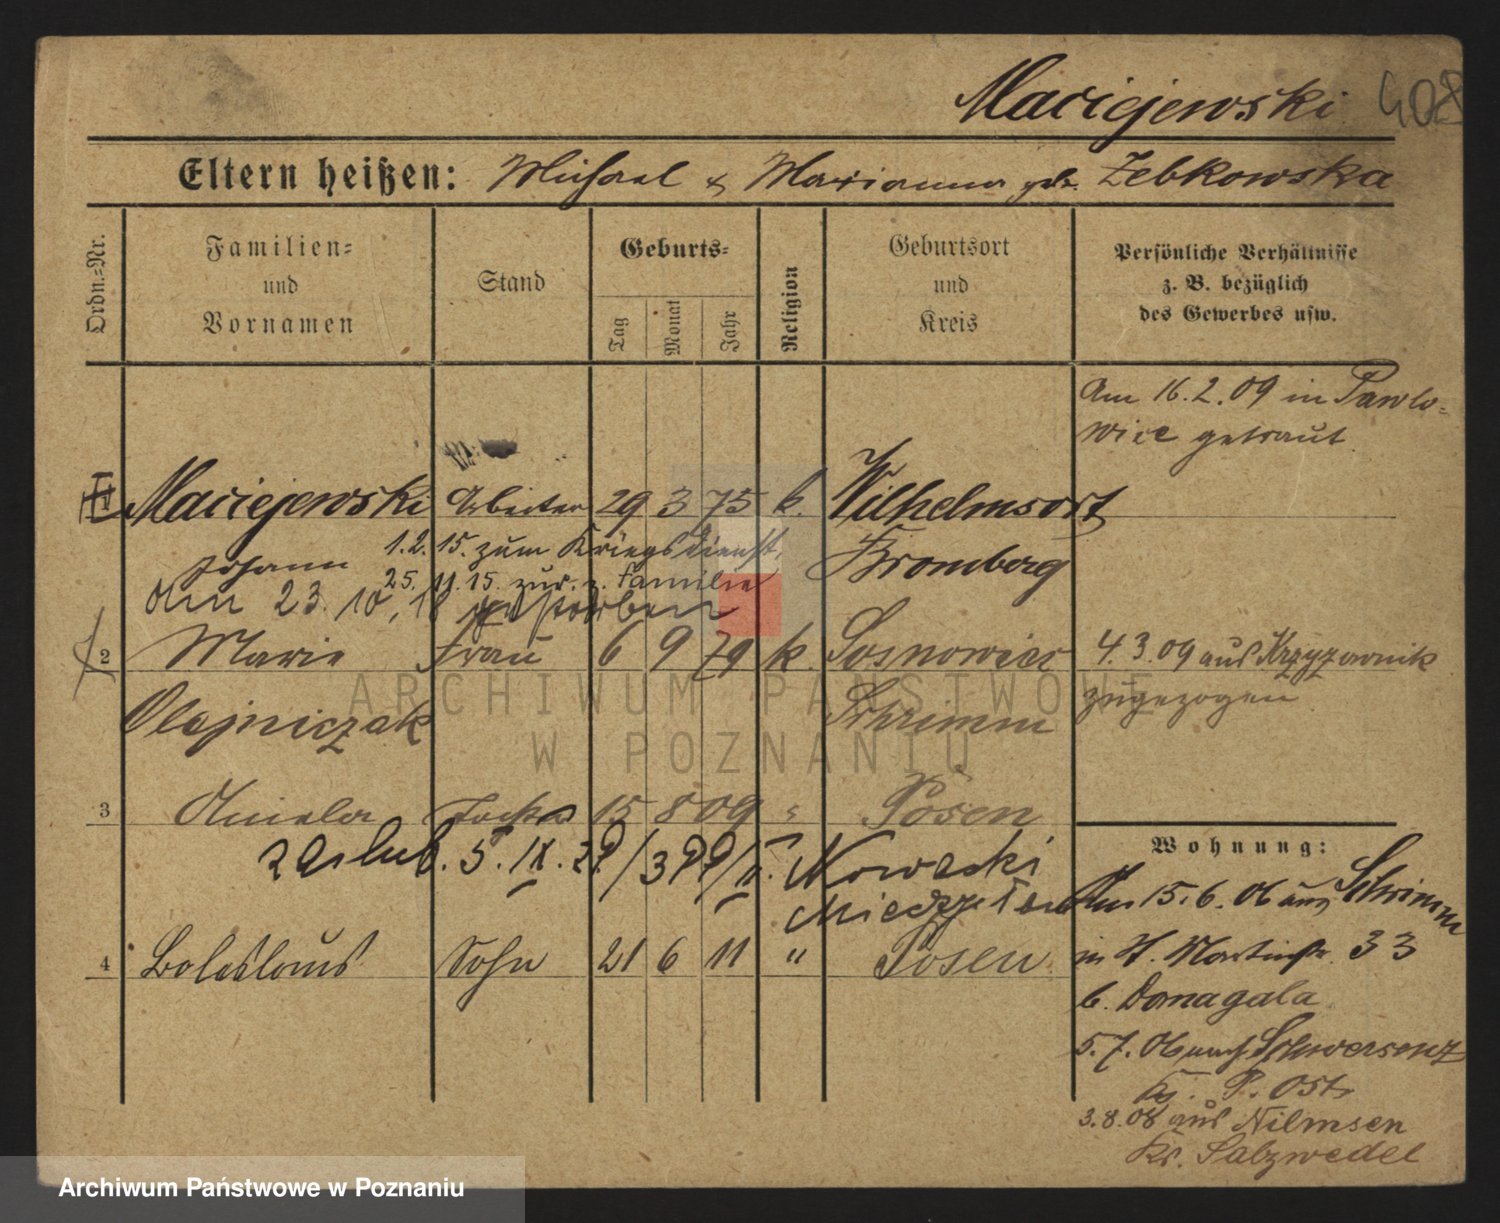 Maciejewski 408
Eltern heißen: Michael & Marianna geb. Zebkowska
Ordn.=Nr.
Familien=
und
Vornamen
Stand
Geburts=
Tag
Monat
Jahr
Religion
Geburtsort
und
Kreis
Persönliche Verhältnisse
z. B. bezüglich
des Gewerbes usw.
Am 16.2.09 in Pawlo=
wice getraut
Maciejewski Arbeiter 29 3 75 k. Wilhelmsort
Johann 1.2.15. zum Kriegsdienst, Bromberg
25.11.15. zur. z. Familie
Am 23.10.18 gestorben
2 Marie Frau 6 9 79 k. Sosnowiec 4.3.09 aus Krzyzownik
Olejniczak Schrimm zugezogen
3 Aniela Tocht. 15 8 09 " Posen
5. IX. 29/3 Nowacki
4 Boleslaus Sohn 21 6 11 " Posen
Wohnung:
Am 15.6.06 aus Schrimm
in St. Martinstr. 33
b. Domagala
5.7.06 nach Schwersenz
Kr. P. Ost
3.8.08 aus Nilmsen
Kr. Salzwedel
ARCHIWUM PAŃSTWOWE
W POZNANIU
Archiwum Państwowe w Poznaniu